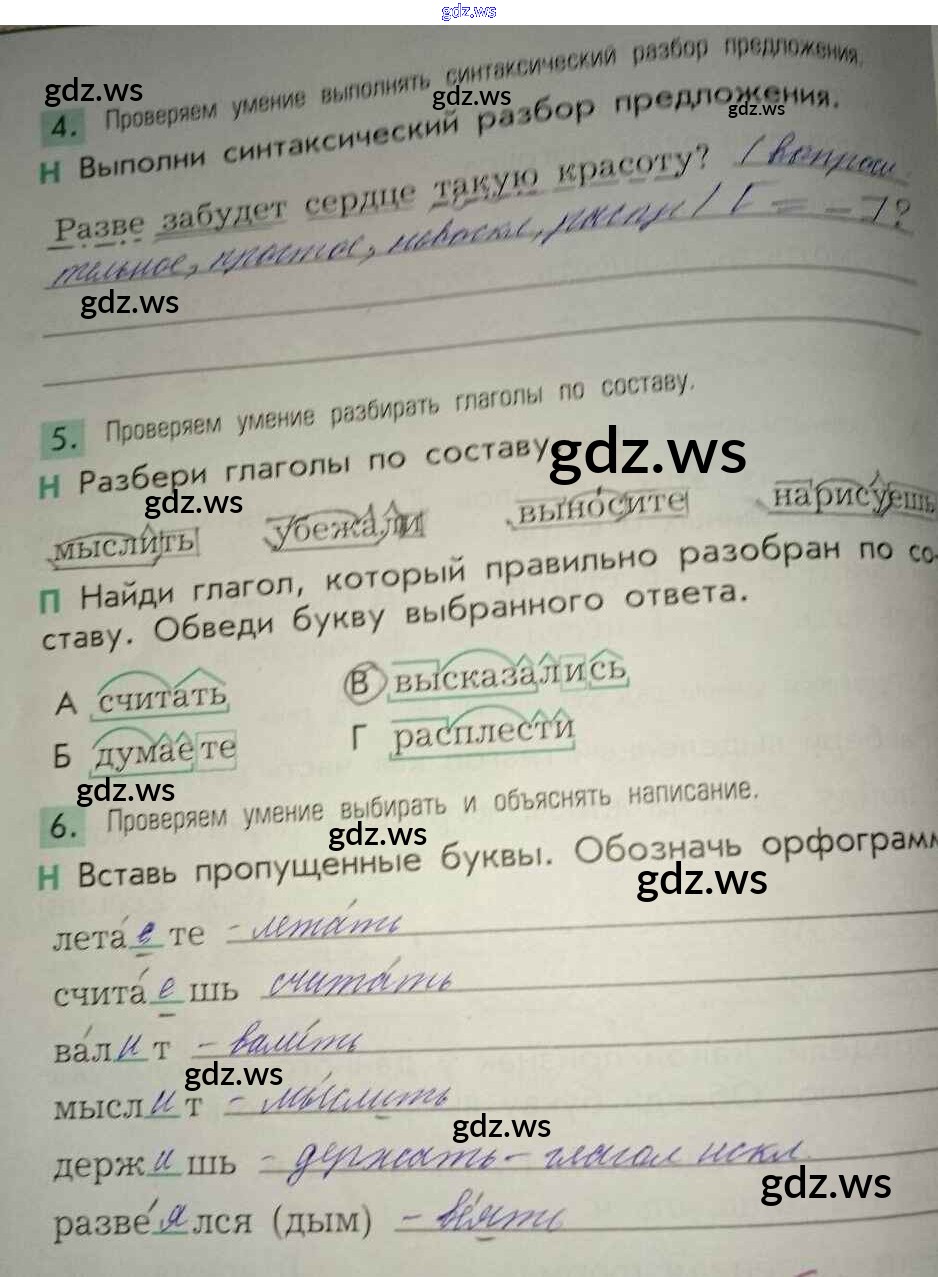 gdz.ws
Проверяем умение выполнять синтаксический разбор предложения.
gdz.ws gdz.ws gdz.ws
4.
Н Выполни синтаксический разбор предложения.
Разве забудет сердце такую красоту? (вопроси
тельное, простое, невоскл, распр) [ = - ]?
gdz.ws
5. Проверяем умение разбирать глаголы по составу.
Н Разбери глаголы по составу
gdz.ws
gdz.ws
мыслить убежали выносите нарисуешь
П Найди глагол, который правильно разобран по со-
ставу. Обведи букву выбранного ответа.
А считать В высказались
Б думаете Г расплести
gdz.ws
6. Проверяем умение выбирать и объяснять написание.
gdz.ws
Н Вставь пропущенные буквы. Обозначь орфограмм
gdz.ws
лета́ е те - лета́ть
счита́ е шь счита́ть
ва́л и т - вали́ть
gdz.ws
мысл и т - мы́слить
gdz.ws
держ и шь - держать - глагол искл.
gdz.ws
разве́ я лся (дым) - ве́ять